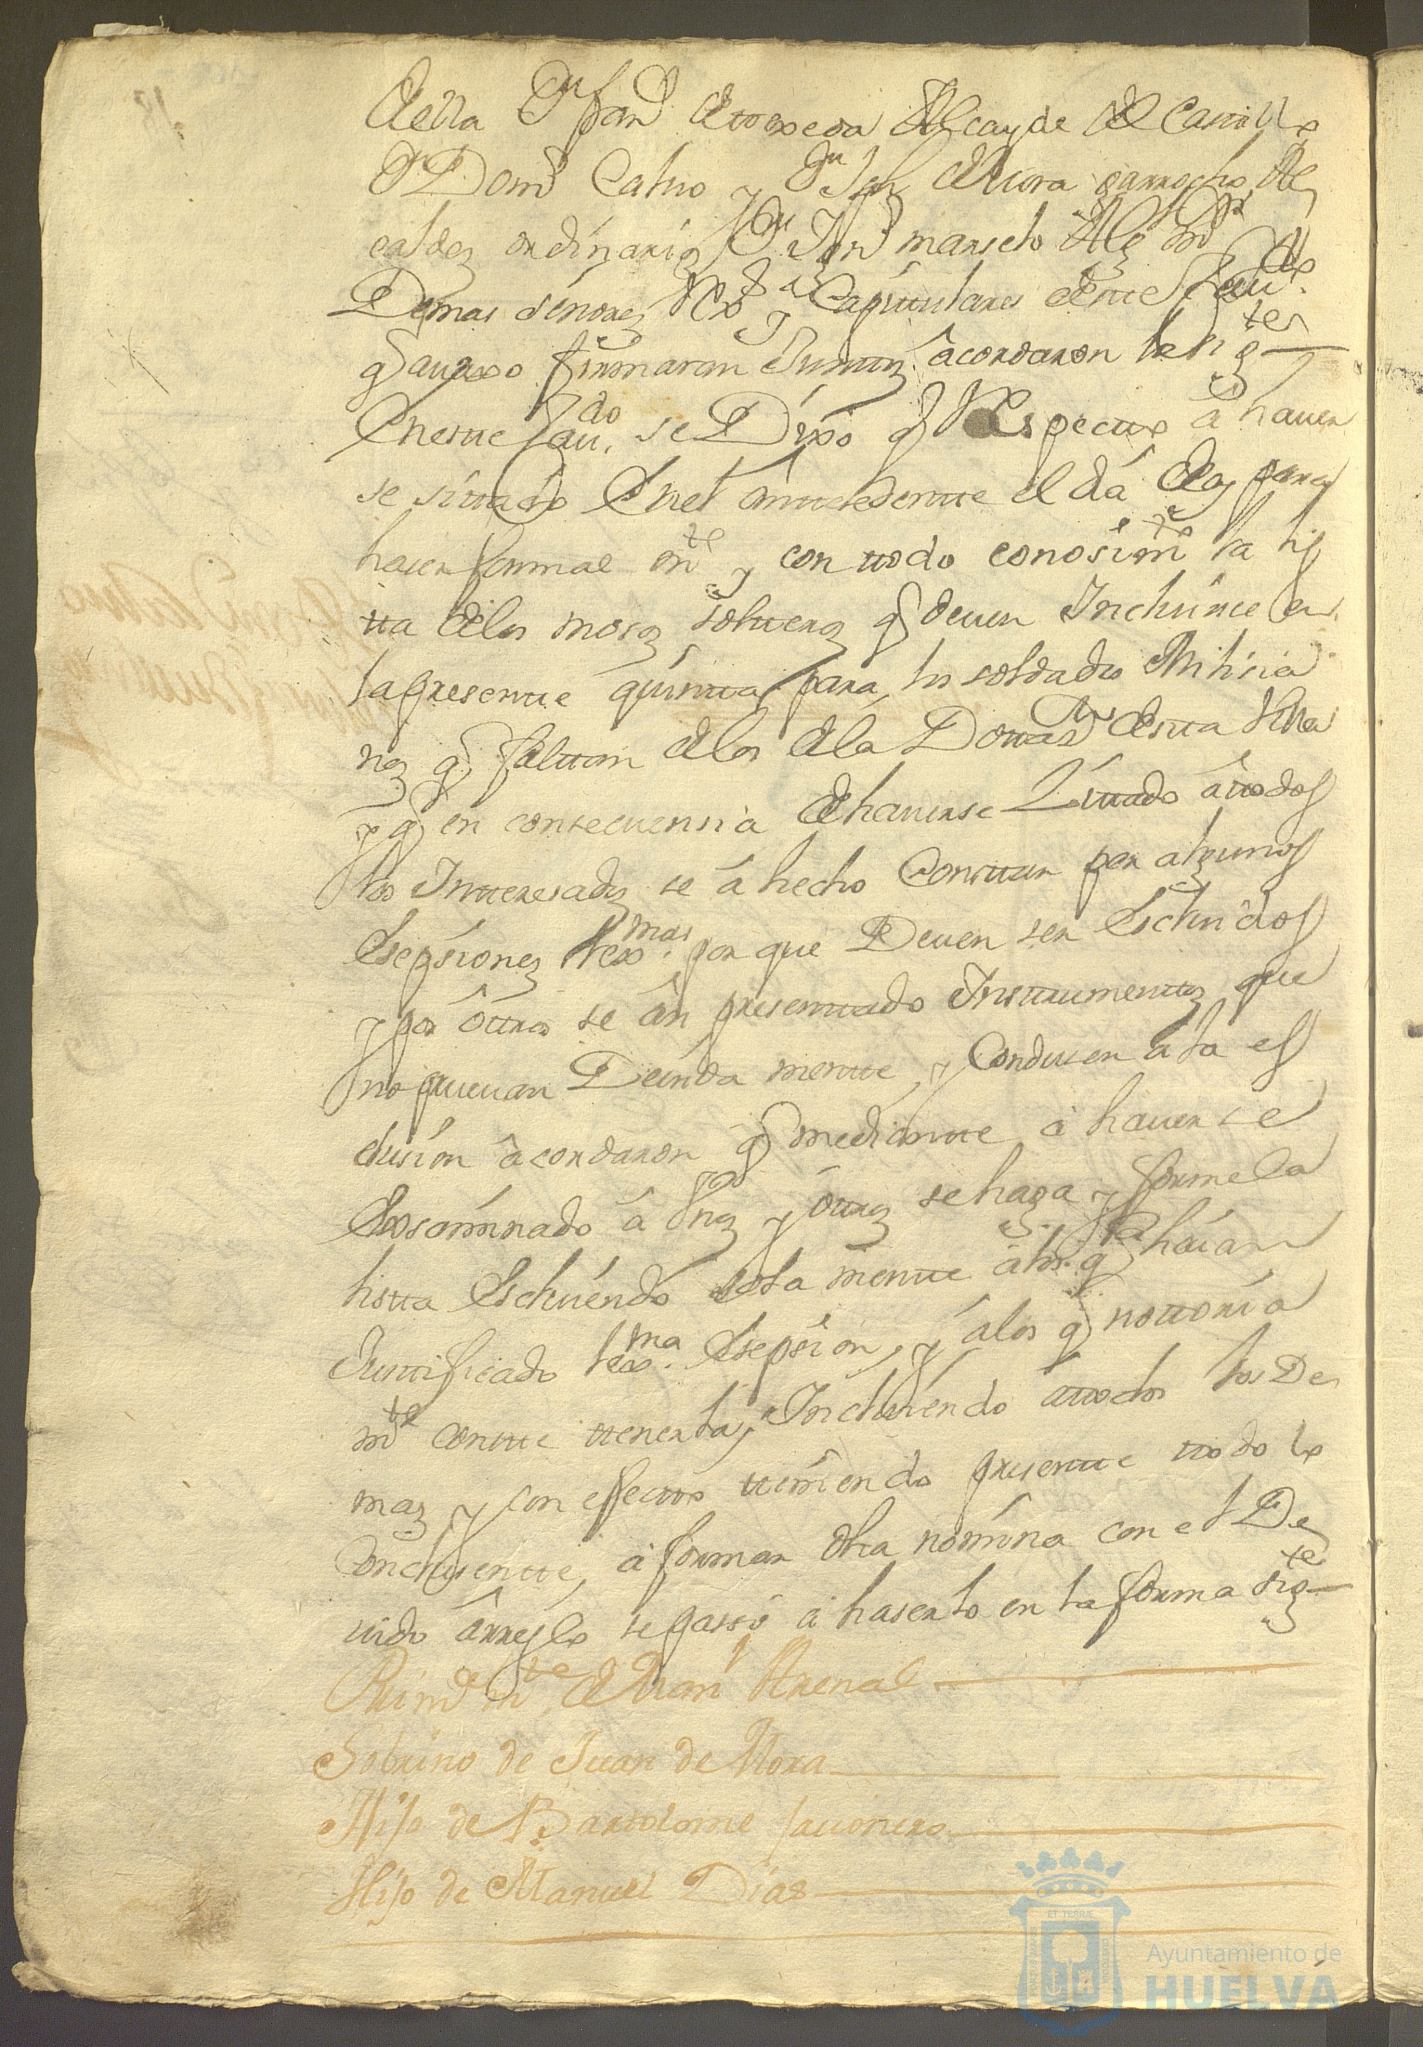 della Dn Fando de toxeda Alcayde del Castillo
Dn Domo Calvo y Dn Jph de Mora garrocho Al
caldes ordinarios Dn Jono marselo Algl mr
Demas señores Rexres y Capitulares deste Cavdo
q avaxo firmaran Juntos acordaron lo sigtes
En este Cavdo se Dixo q Respecto â haver
se sitado En el antesedente el dia de oy para
haser formal mte y con todo conosimto la lis
ta de los mosos solteros q deven Incluirse en
la presente quinta para los soldados Milisia
nos q faltan de los de la Dotasn de esta Villa
y q en consecuensia de haverse Zitado â todos
los Interesados se â hecho Constar por algunos
Esepsiones lexmas por que Deven ser Escluidos
y por otros se ân presentado Instrumentos que
no pruevan Devida mente, y Conducen â la es
clusion âcordaron q mediante â haverse
Exsaminado â Unos y ôtros se haga y forme la
lista Escluiendo sola mente â los q haian
Justificado lexma Esepsion, y â los q notoria
mte conste tenerla, Incluiendo â todos los De
mas y con efecto teniendo presente todo lo
Condusente, â formar dha nomina con el De
vido ârreglo se passo â haserlo en la forma sigte
Primte de Juan Arenal
Sobrino de Juan de Mora
Hijo de Bartolome
Hijo de Manuel Dias
Ayuntamiento de
HUELVA